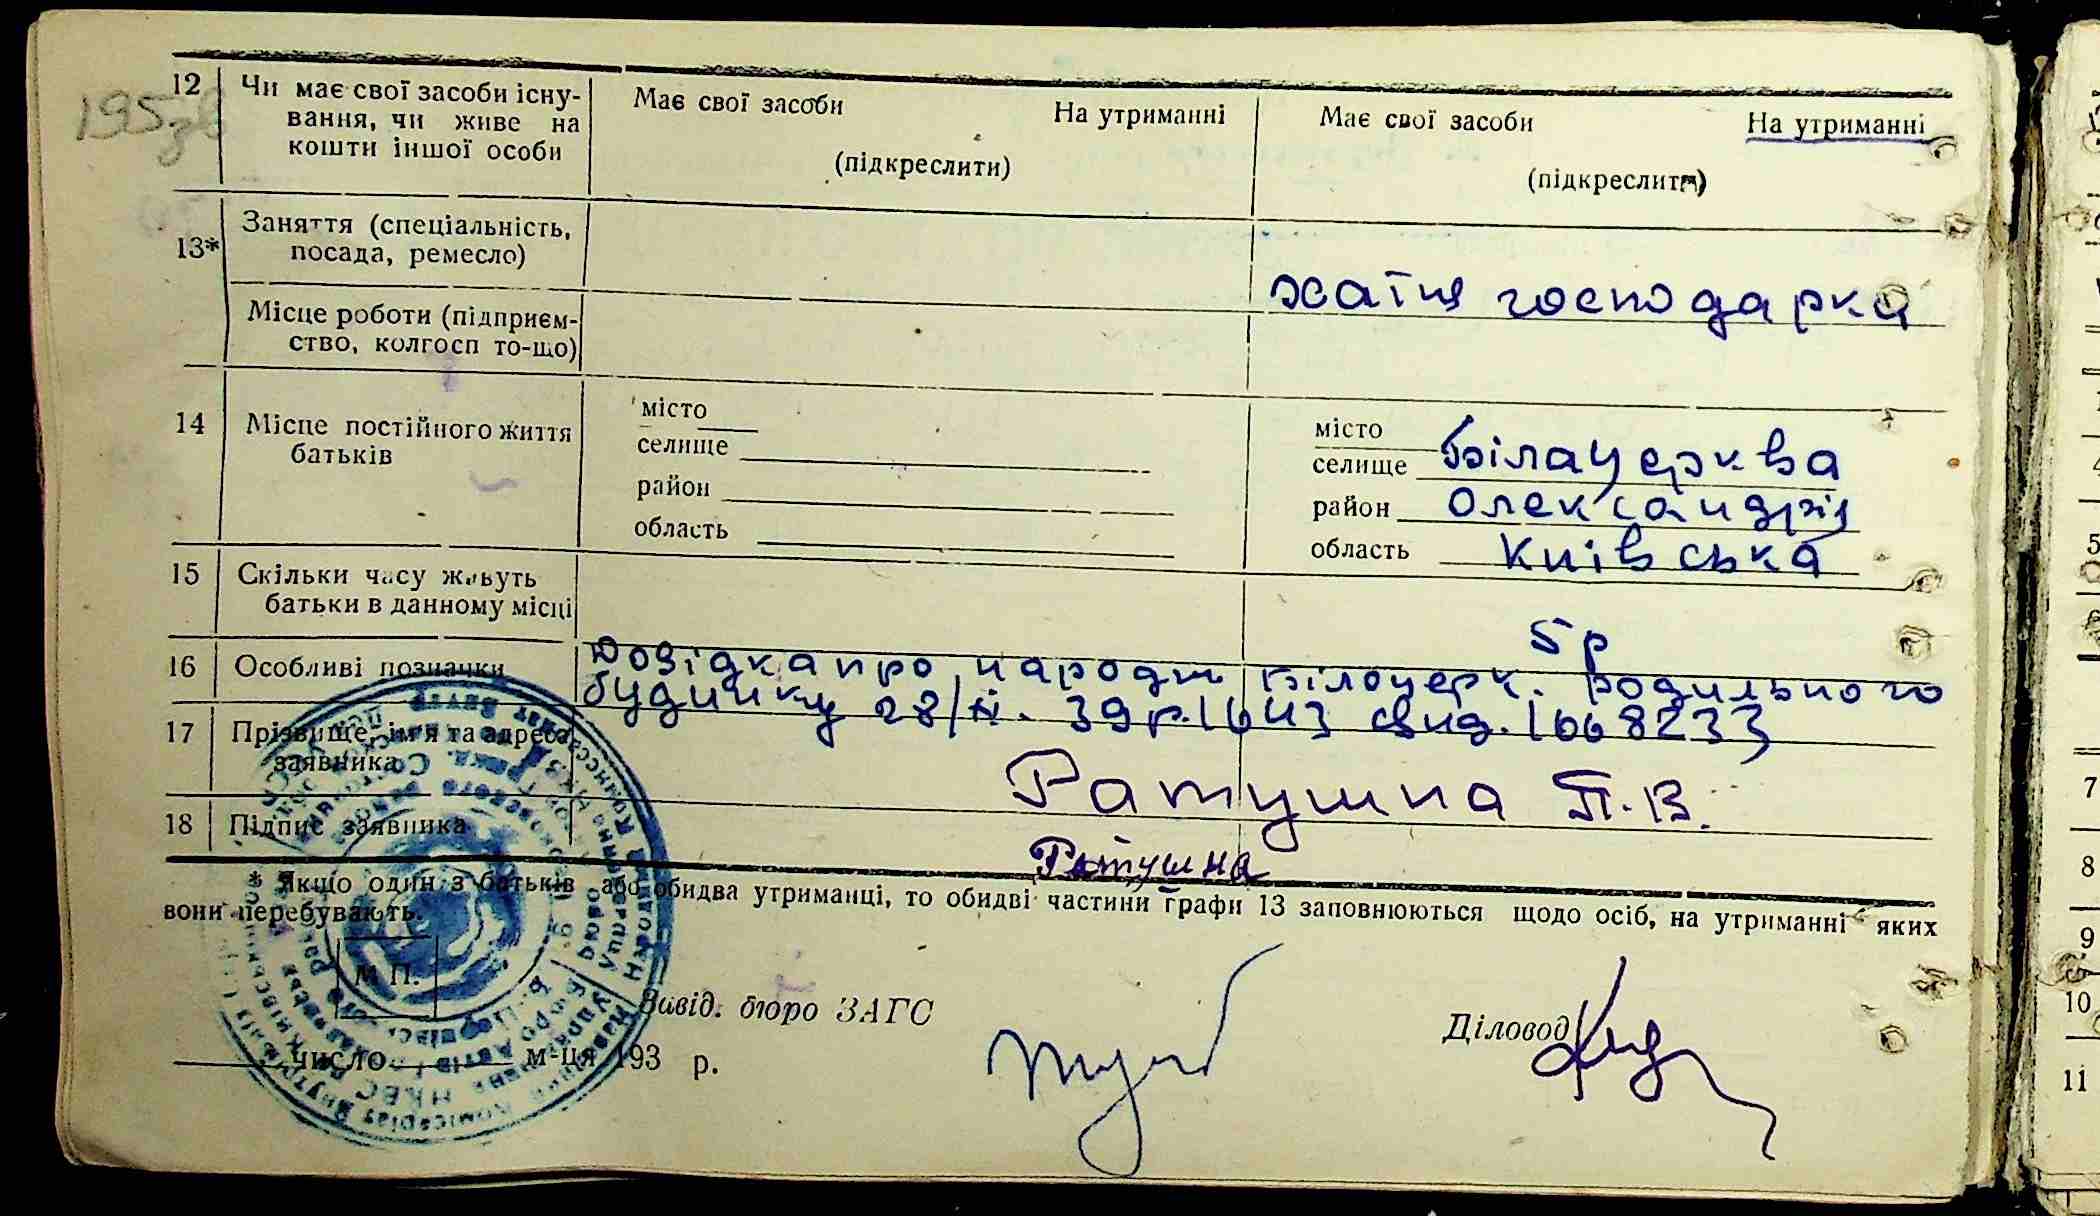 195зв
12 Чи має свої засоби існу-
вання, чи живе на
кошти іншої особи
Має свої засоби На утриманні
(підкреслити)
Має свої засоби На утриманні
(підкреслити)
13* Заняття (спеціальність,
посада, ремесло)
Місце роботи (підприєм-
ство, колгосп то-що)
хатня господарка
14 Місце постійного життя
батьків
місто
селище
район
область
місто
селище Біла Церква
район Олександрія
область Київська
15 Скільки часу живуть
батьки в данному місці
5 р
16 Особливі позначки
Довідка про народж Білоцерк. родильного
будинку 28/ІІ. 39 р. 1643 свид. 1668233
17 Прізвище, ім'я та адреса
заявника
Ратушна П. В.
18 Підпис заявника
Ратушна
* Якщо один з батьків або обидва утриманці, то обидві частини графи 13 заповнюються щодо осіб, на утриманні яких
вони перебувають.
М П.
Завід. бюро ЗАГС
Діловод
число м-ця 193 р.
7
8
9
10
11